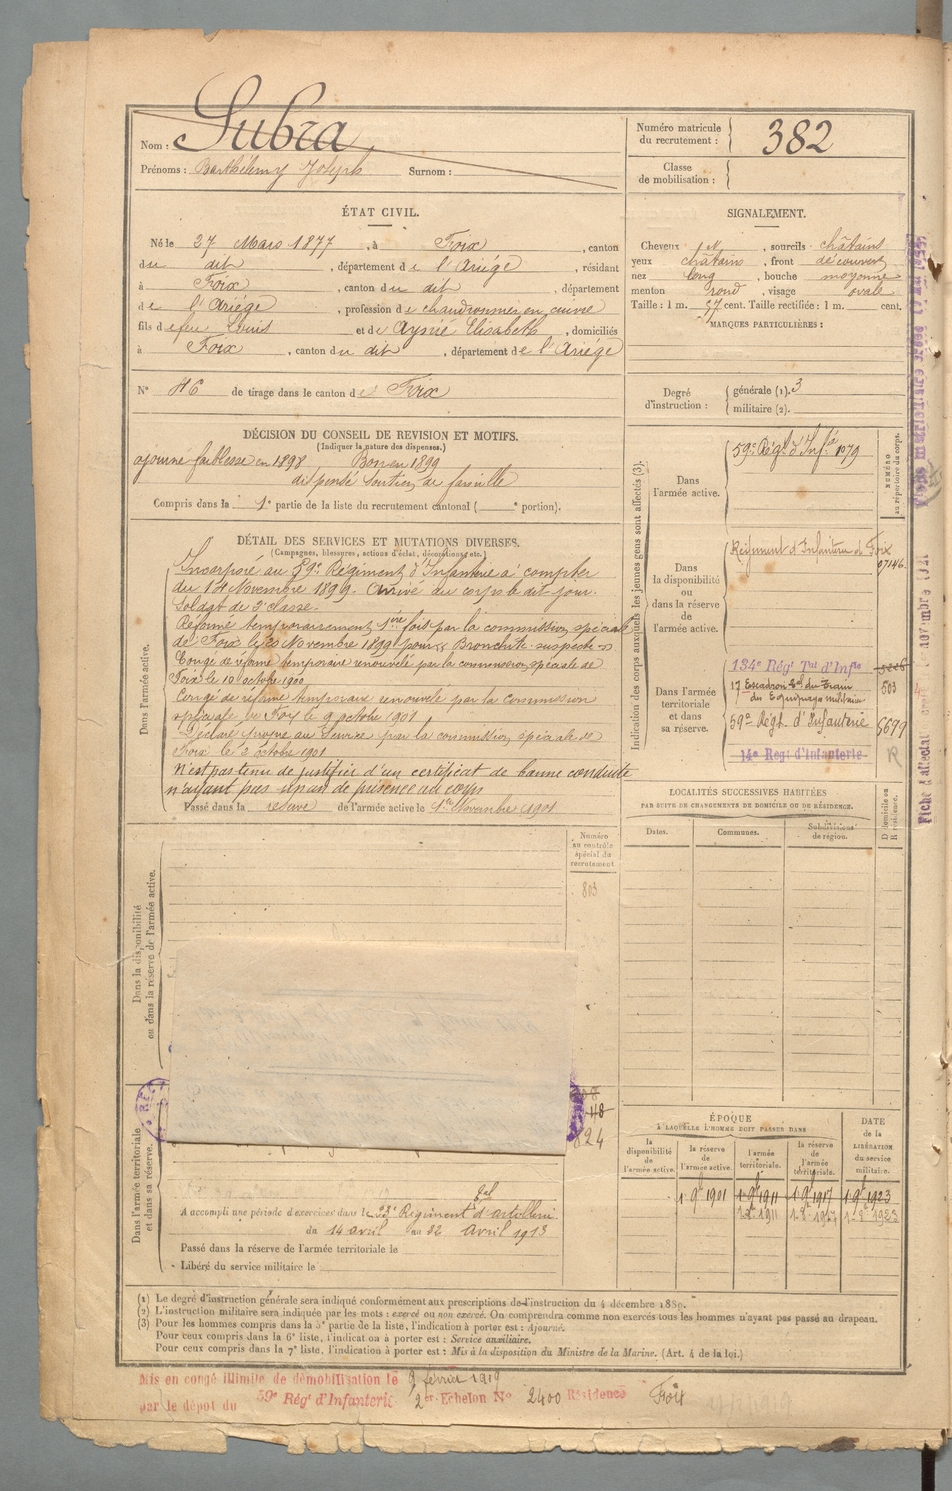 Nom : Subra
Prénoms : Barthélemy Joseph Surnom :
Numéro matricule du recrutement : 382
Classe de mobilisation :
ÉTAT CIVIL.
Né le 27 Mars 1877, à Foix, canton
du dit, département de l'Ariége, résidant
à Foix, canton du dit, département
de l'Ariége, profession de chaudronnier en cuivre
fils de feu Louis et de Aynié Elisabeth, domiciliés
à Foix, canton du dit, département de l'Ariége
N° 46 de tirage dans le canton de Foix
SIGNALEMENT.
Cheveux et, sourcils châtains
yeux châtains, front découvert
nez long, bouche moyenne
menton rond, visage ovale
Taille : 1 m. 57 cent. Taille rectifiée : 1 m. cent.
MARQUES PARTICULIÈRES :
Degré d'instruction : générale (1). 3
militaire (2).
DÉCISION DU CONSEIL DE REVISION ET MOTIFS.
(Indiquer la nature des dispenses.)
ajourné faiblesse en 1898 Bon en 1899
dispensé soutien de famille
Compris dans la 1e partie de la liste du recrutement cantonal ( e portion).
DÉTAIL DES SERVICES ET MUTATIONS DIVERSES.
(Campagnes, blessures, actions d'éclat, décorations, etc.)
Dans l'armée active.
Incorporé au 59e Régiment d'Infanterie a compter
du 14 Novembre 1899. Arrivé au corps le dit jour.
Soldat de 2e classe.
Réformé temporairement 1ère fois par la commission spéciale
de Foix le 20 Novembre 1899 pour Bronchite suspecte
Congé de réforme temporaire renouvelé par la commission spéciale de
Foix le 10 octobre 1900
Congé de réforme temporaire renouvelé par la Commission
spéciale de Foix le 9 octobre 1901
Déclaré propre au service par la commission spéciale de
Foix le 2 octobre 1901
N'est pas tenu de justifier d'un certificat de bonne conduite
n'ayant pas un an de présence au corps
Passé dans la réserve de l'armée active le 1er Novembre 1901
Indication des corps auxquels les jeunes gens sont affectés (3).
NUMÉRO au répertoire du corps.
Dans l'armée active.
59e Régt d'Infie 1079
Dans la disponibilité ou dans la réserve de l'armée active.
Régiment d'Infanterie de Foix 07146
Dans l'armée territoriale et dans sa réserve.
134e Régt Tal d'Infie
17 Escadron Tal du Train 503
des Equipages militaires
59e Régt. d'Infanterie 5679
14e Regt d'Infanterie R
LOCALITÉS SUCCESSIVES HABITÉES
PAR SUITE DE CHANGEMENTS DE DOMICILE OU DE RÉSIDENCE.
Dates. Communes. Subdivisions de région. Domicile ou Résidence.
Numéro au contrôle spécial du recrutement
803
Dans la disponibilité ou dans la réserve de l'armée active.
824
Dans l'armée territoriale et dans sa réserve.
A accompli une période d'exercices dans le 23e Régiment d'artillerie
du 14 avril au 22 Avril 1913
Passé dans la réserve de l'armée territoriale le
Libéré du service militaire le
ÉPOQUE
A LAQUELLE L'HOMME DOIT PASSER DANS
la disponibilité de l'armée active.
la réserve de l'armée active.
l'armée territoriale.
la réserve de l'armée territoriale.
DATE de la LIBÉRATION du service militaire.
1 9b 1901 1 9b 1911 1 9b 1917 1 9b 1923
(1) Le degré d'instruction générale sera indiqué conformément aux prescriptions de l'instruction du 4 décembre 1889.
(2) L'instruction militaire sera indiquée par les mots : exercé ou non exercé. On comprendra comme non exercés tous les hommes n'ayant pas passé au drapeau.
(3) Pour les hommes compris dans la 5e partie de la liste, l'indication à porter est : Ajourné.
Pour ceux compris dans la 6e liste, l'indication à porter est : Service auxiliaire.
Pour ceux compris dans la 7e liste, l'indication à porter est : Mis à la disposition du Ministre de la Marine. (Art. 4 de la loi.)
Mis en congé illimité de démobilisation le 9 février 1919
par le dépôt du 59e Régt d'Infanterie 2er Echelon N° 2400 Résidence Foix